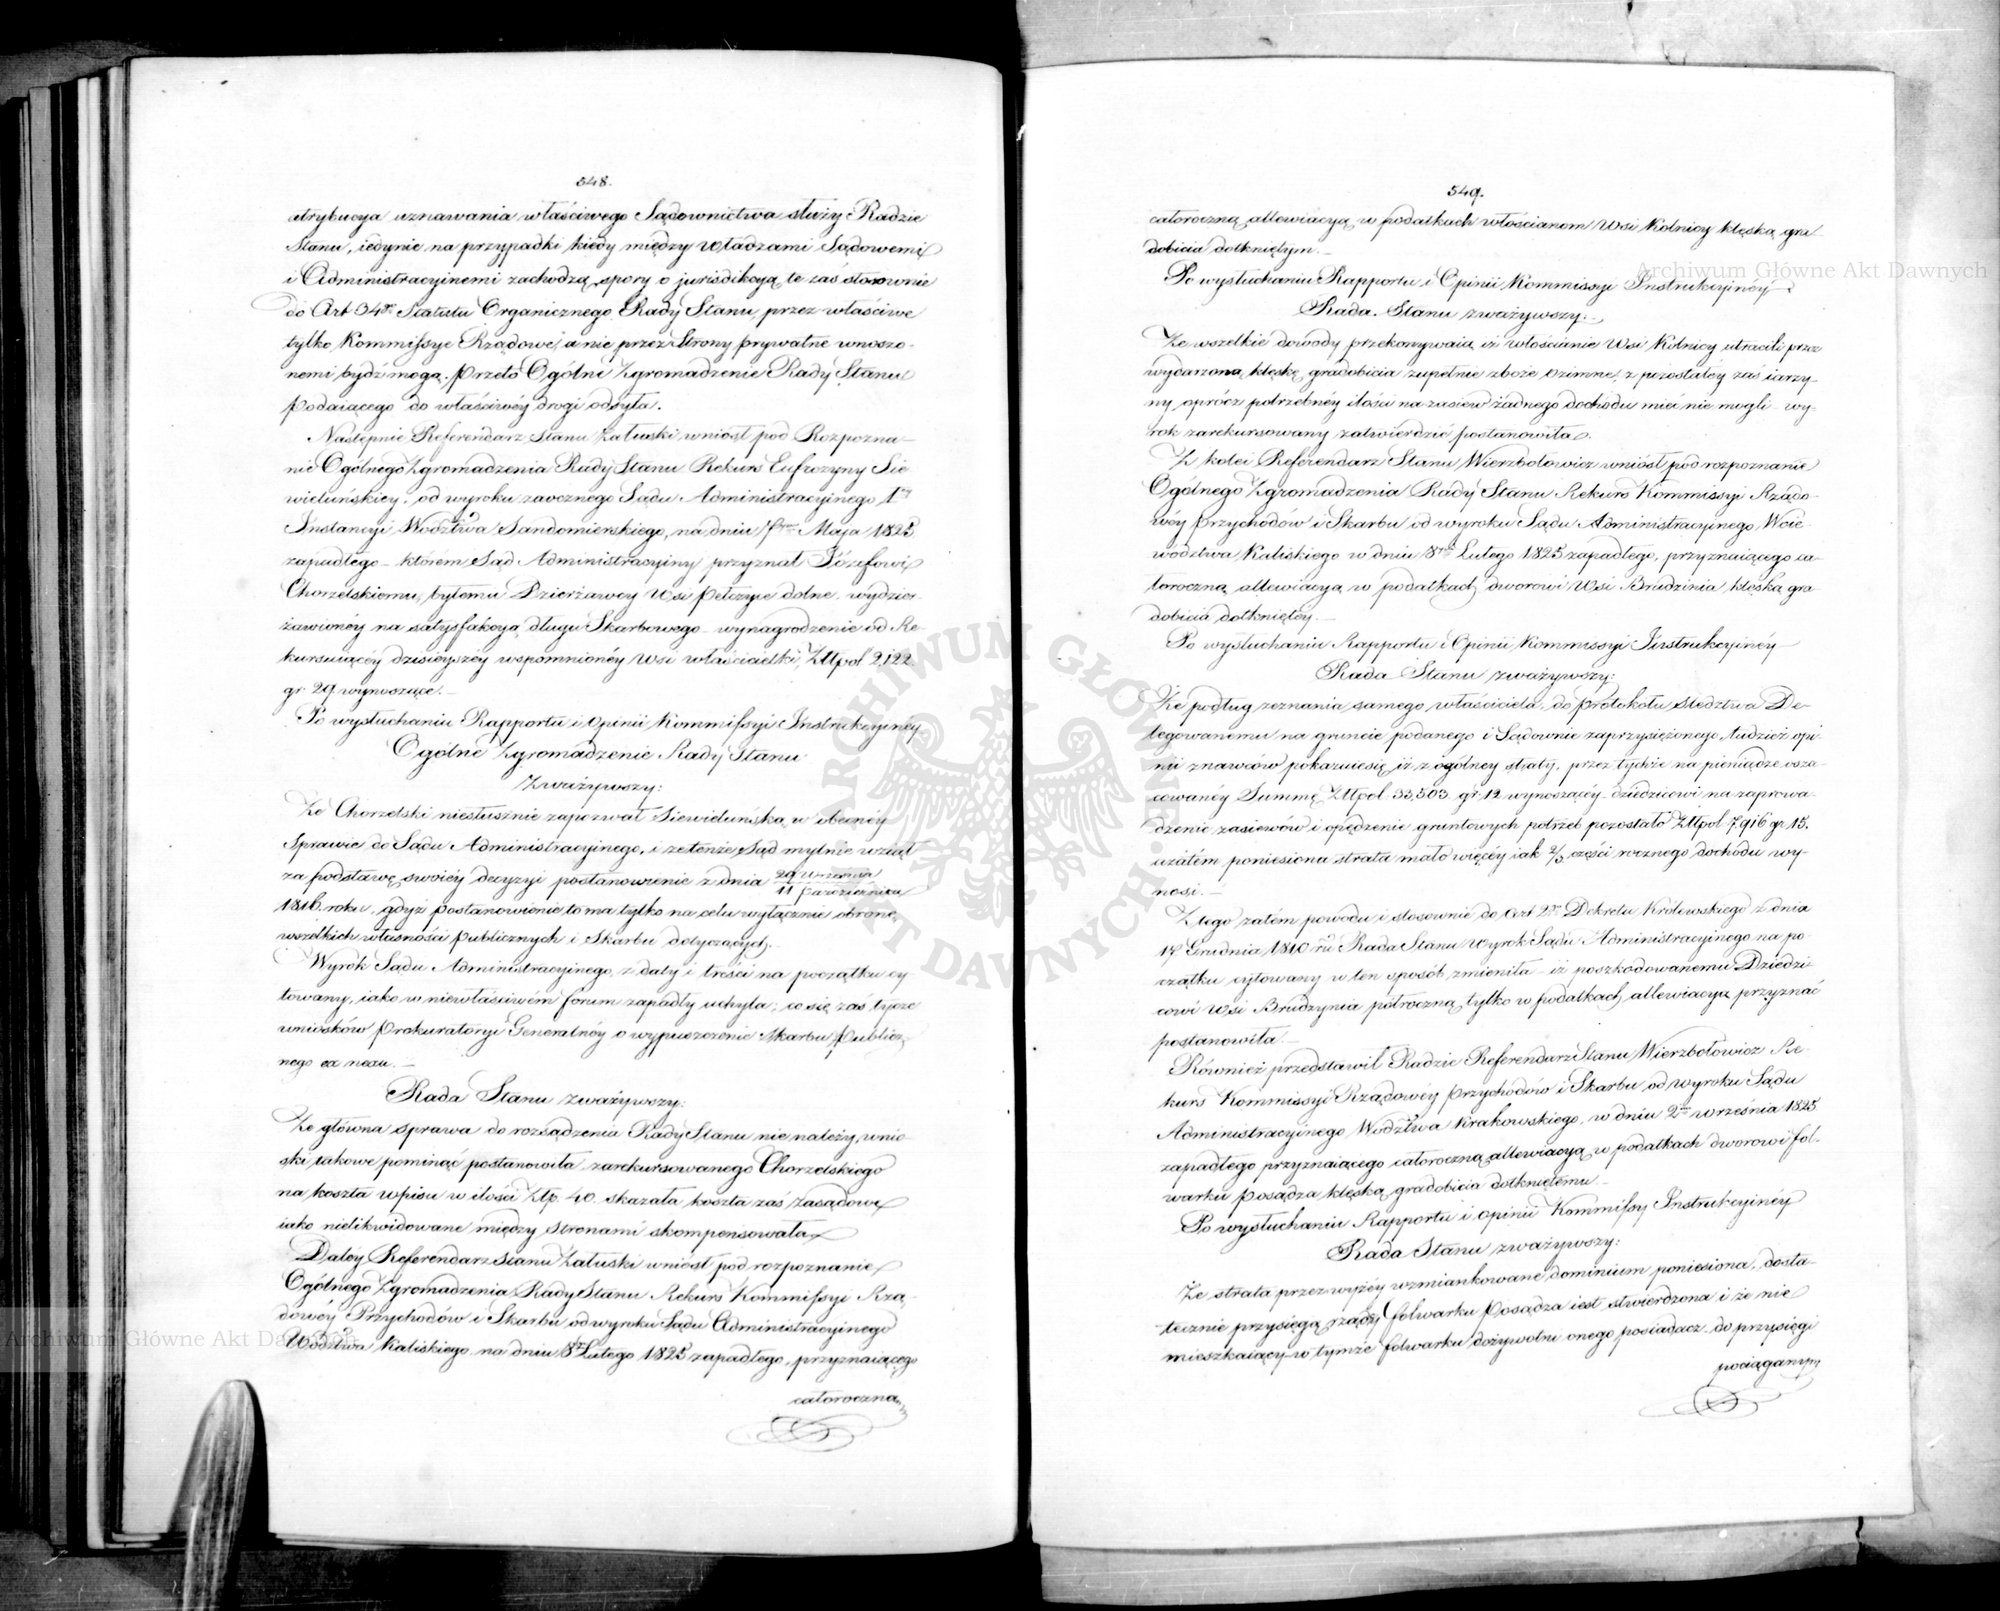 548.
atrybucya uznawania właściwego Sądownictwa służy Radzie
Stanu, iedynie na przypadki kiedy między Władzami Sądowemi
i Administracyinemi zachodzą spory o jurisdikcyą, te zaś stosownie
do Art 34go Statutu Organicznego Rady Stanu, przez właściwe
tylko Kommissye Rządowe, a nie przez Strony prywatne wnoszo-
nemi bydź mogą, przeto Ogólne Zgromadzenie Rady Stanu
Podaiącego do właściwéy drogi odsyła.
Następnie Referendarz Stanu Załuski wniósł pod Rozpozna-
nie Ogólnego Zgromadzenia Rady Stanu Rekurs Eufrozyny Sie
wieluńskiey, od wyroku zaocznego Sądu Administracyinego 1ey
Instancyi Wodztwa Sandomierskiego, na dniu Maja 1825
zapadłego – którém Sąd Administracyiny przyznał Józefowi
Chorzelskiemu, byłemu Dzierżawcy Wsi Pełczyce dolne, wydzier-
żawionéy na satysfakcyą długu Skarbowego – wynagrodzenie od Re-
kursuiącéy dzisieyszéy wspomnionéy Wsi właścicielki, Złtpol 2122.
gr. 29 wynoszące. –
Po wysłuchaniu Rapportu i Opinii Kommissyi Instrukcyiney
Ogólne Zgromadzenie Rady Stanu
Zważywszy:
Że Chorzelski niesłusznie zapozwał Siewieluńską w obecnéy
Sprawie do Sądu Administracyinego, i że tenże Sąd mylnie wziął
za podstawę swoiéy decyzyi postanowienie z dnia 29 Września
11 Października
1816 roku, gdyż postanowienie to ma tylko na celu wyłącznie obronę
wszelkich własności publicznych i Skarbu dotyczących.
Wyrok Sądu Administracyinego z daty i treści na początku cy
towany, iako w niewłaściwém forum zapadły uchyla; co się zaś tycze
wniosków Prokuratoryi Generalnéy o wypuszczenie Skarbu Public-
nego ex nexu. –
Rada Stanu zważywszy:
Że główna sprawa do rozsądzenia Rady Stanu nie należy, wnio-
ski takowe pominąć postanowiła, zarekursowanego Chorzelskiego
na koszta wpisu w ilości Złp. 40. skazała, koszta zaś zasądowe
iako nielikwidowane między Stronami skompensowała.
Daley Referendarz Stanu Załuski wniósł pod rozpoznanie
Ogólnego Zgromadzenia Rady Stanu Rekurs Kommissyi Rzą-
dowéy Przychodów i Skarbu od wyroku Sądu Administracyinego
Wodztwa Kaliskiego na dniu 8 Lutego 1825 zapadłego, przyznaiącego
całoroczną
549.
całoroczną allewiacyą w podatkach włościanom Wsi Kolnicy klęską gra-
dobicia dotkniętym. –
Po wysłuchaniu Rapportu i Opinii Kommissyi Instrukcyinéy
Rada Stanu zważywszy:
Że wszelkie dowody przekonywaią, iż włościanie Wsi Kolnicy utracili przez
wydarzoną klęskę gradobicia zupełnie zboże ozimne, z pozostałey zaś iarzy-
ny, oprócz potrzebnéy ilości na zasiew żadnego dochodu mieć nie mogli – wy-
rok zarekursowany zatwierdzić postanowiła.
Z kolei Referendarz Stanu Wierzbołowicz wniósł pod rozpoznanie
Ogólnego Zgromadzenia Rady Stanu Rekurs Kommissyi Rządo-
wéy Przychodów i Skarbu od wyroku Sądu Administracyinego Woie-
wództwa Kaliskiego w dniu 8 Lutego 1825 zapadłego, przyznaiącego ca-
łoroczną allewiacyą w podatkach dworowi Wsi Brudzinia klęską gra
dobicia dotkniętéy. –
Po wysłuchaniu Rapportu i Opinii Kommissyi Instrukcyinéy
Rada Stanu zważywszy:
Że podług zeznania samego właściciela, do protokołu śledztwa De-
legowanemu na gruncie podanego i Sądownie zaprzysiężonego, tudzież opi-
nii znawców pokazuie się, iż z ogólney straty, przez tychże na pieniądze osza-
cowanéy Summę Złtpol 33,503 gr. 12 wynoszącéy – dziedzicowi na zaprowa-
dzenie zasiewów i opędzenie gruntowych potrzeb pozostało Złtpol 7,916 gr 15.
a zatém poniesiona strata mało więcéy iak 2/3 części rocznego dochodu wy-
nosi. –
Z tego zatém powodu i stosownie do Art 2go Dekretu Królewskiego z dnia
14 Grudnia 1810 ru Rada Stanu wyrok Sądu Administracyinego na po-
czątku cytowany w ten sposób zmieniła – iż poszkodowanemu Dziedzi-
cowi Wsi Brudzynia półroczną tylko w podatkach allewiacyą przyznać
postanowiła. –
Również przedstawił Radzie Referendarz Stanu Wierzbołowicz Re-
kurs Kommissyi Rządowéy Przychodów i Skarbu od wyroku Sądu
Administracyinego Wodztwa Krakowskiego, w dniu 2 września 1825
zapadłego przyznaiącego całoroczną allewiacyą w podatkach dworowi fol-
warku Posądza klęską gradobicia dotkniętemu. –
Po wysłuchaniu Rapportu i opinii Kommissyi Instrukcyinéy
Rada Stanu zważywszy:
Że strata przez wyżéy wzmiankowane dominium poniesiona, dosta-
tecznie przysięgą rządcy folwarku Posądza iest stwierdzona i że nie
mieszkaiący w tymże folwarku dożywotni onego posiadacz do przysięgi
pociąganym
Archiwum Główne Akt Dawnych
Archiwum Główne Akt Dawnych
ARCHIWUM GŁÓWNE AKT DAWNYCH